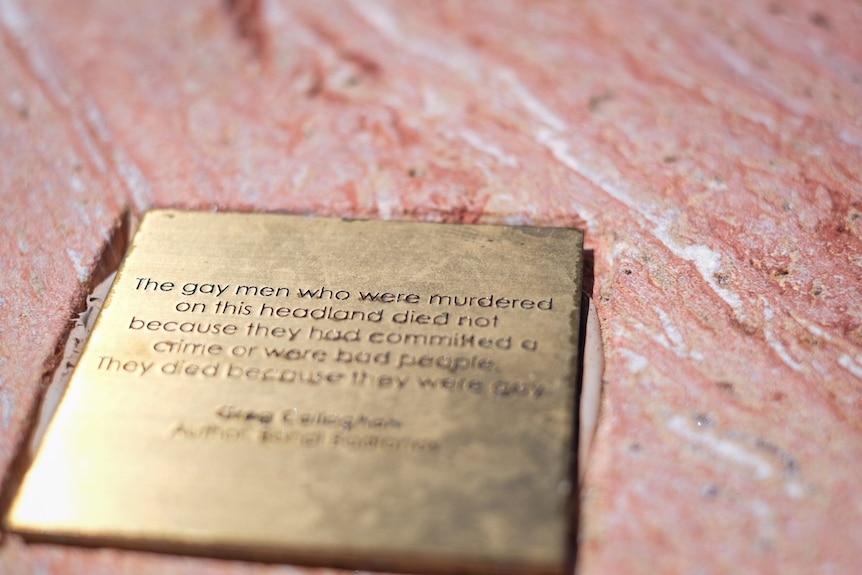 The gay men who were murdered
on this headland died not
because they had committed a
crime or were bad people.
They died because they were gay.
Greg Callaghan
Author, Bondi Badlands